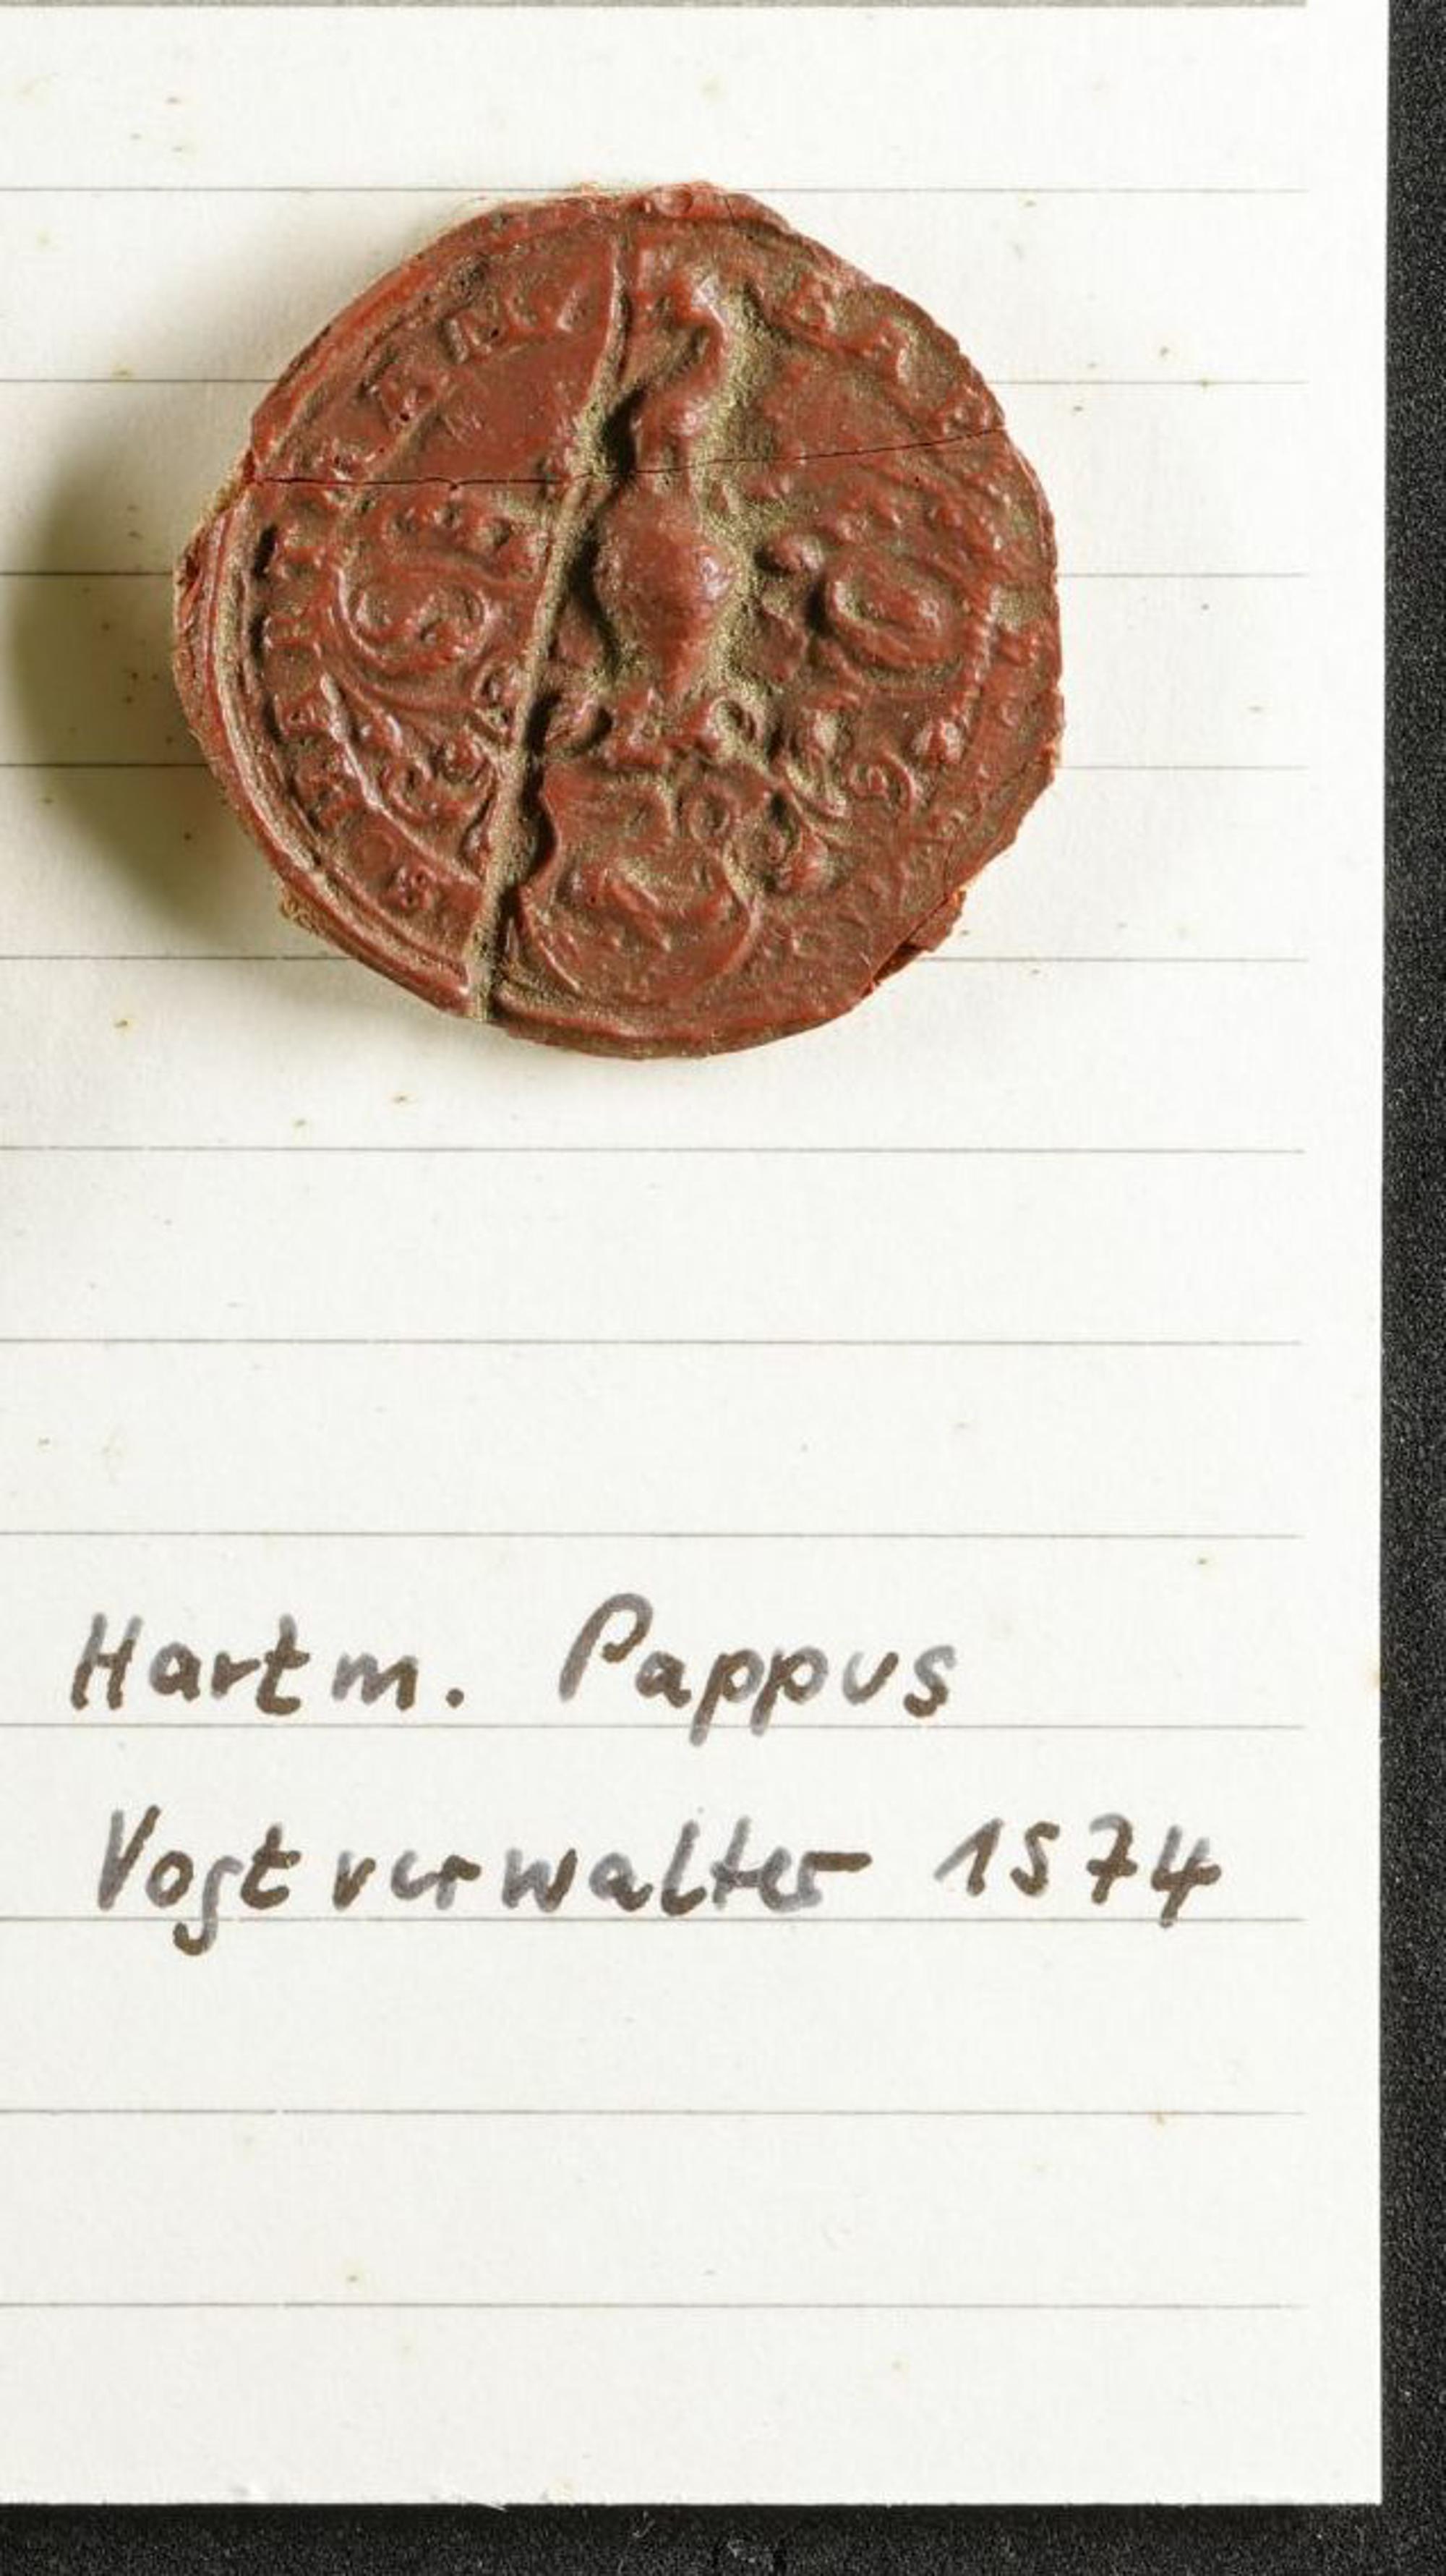 HARTMAN
Hartm. Pappus
Vogtverwalter 1574